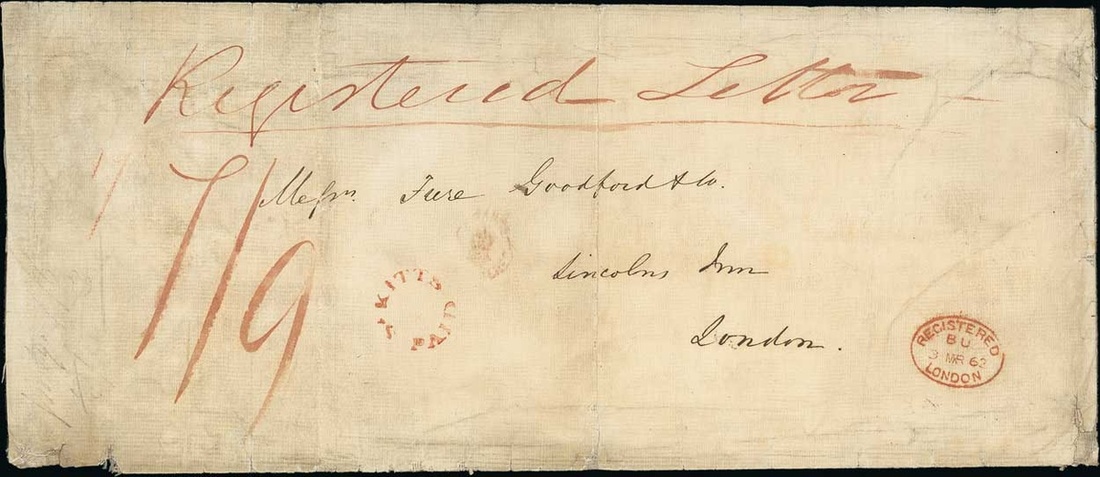 Registered Letter
1/
7/9
Messrs. Fure Goodford & Co.
Lincolns Inn
London.
St KITTS
PAID
REGISTERED
BU
3 MR 62
LONDON